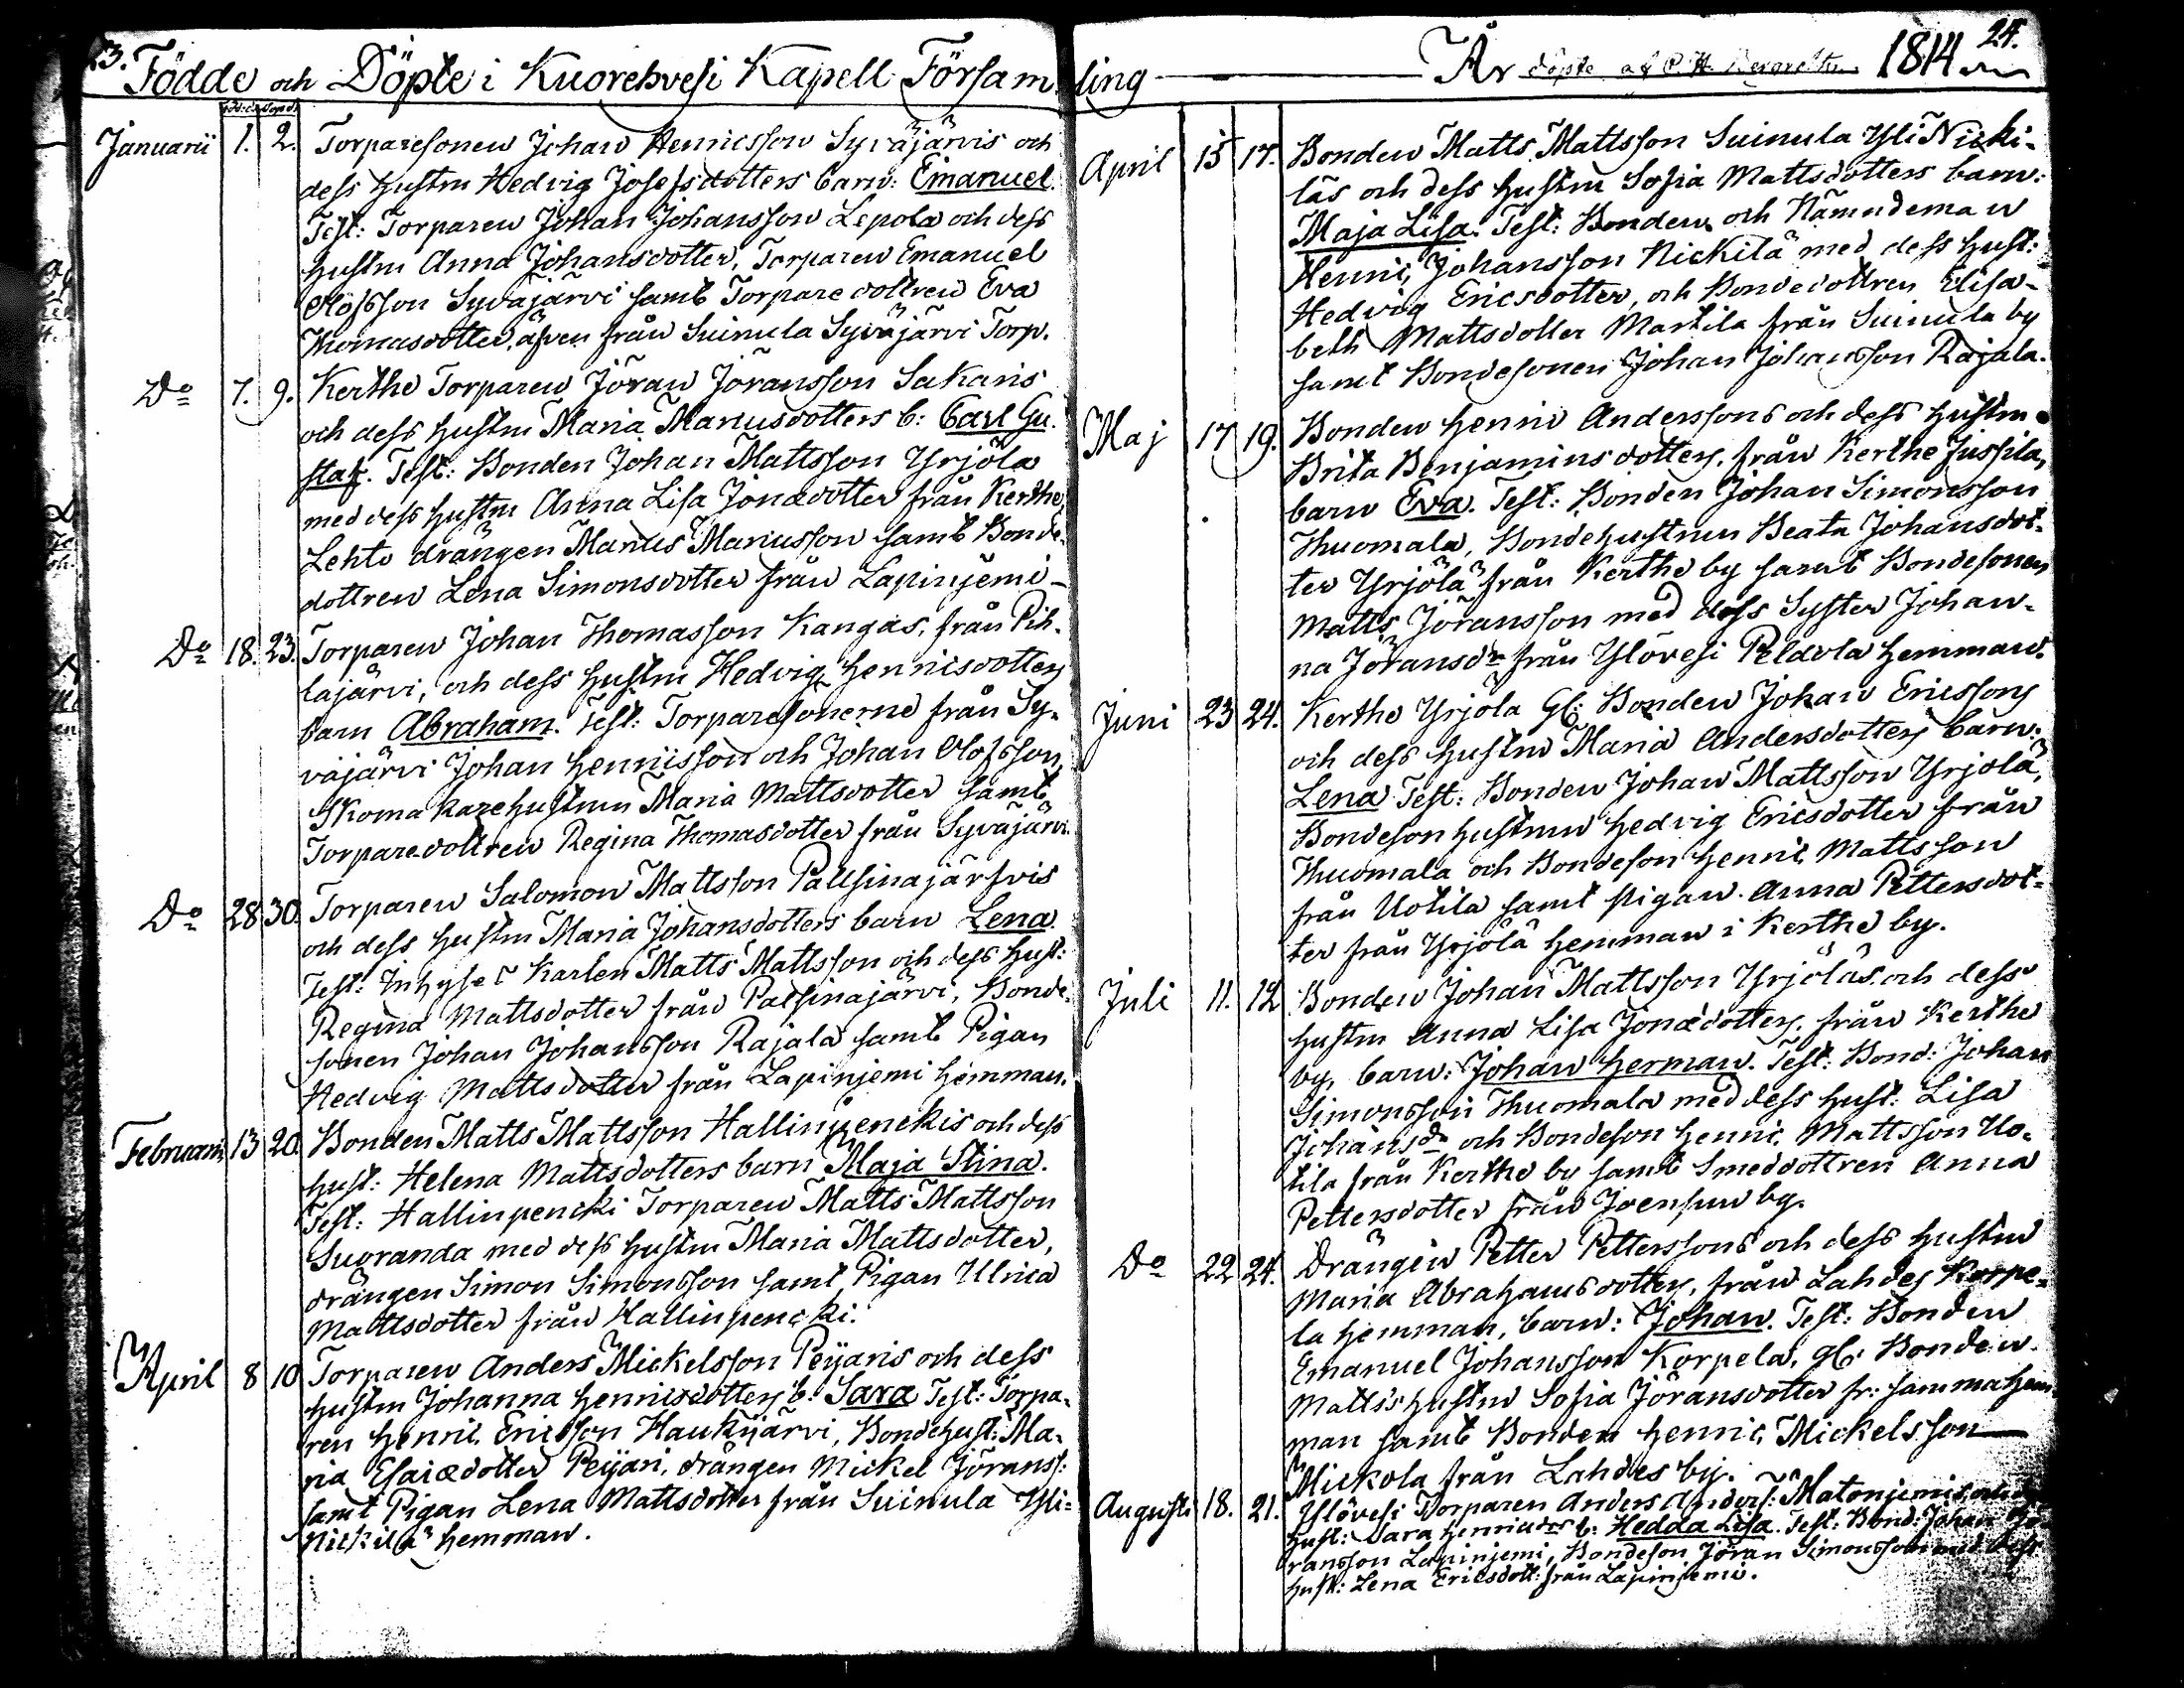 23. Födde och Döpte i Kuorehvesi Kapell Försam
Januarii 1. 2. Torparesonen Johan Henricsson Syväjärvis och
dess hustru Hedvig Josefsdotters barn: Emanuel.
Test: Torparen Johan Johansson Lepola och dess
hustru Anna Johansdotter, Torparen Emanuel
Olofsson Syväjärvi samt Torparedottren Eva
Thomasdotter, äfven från Suinula Syväjärvi Torp.
Do 7. 9. Kerthe Torparen Jöran Jöransson Sakaris
och dess hustru Maria Mariusdotters b: Carl Gu-
staf. Test: Bonden Johan Mattsson Yrjölä
med dess hustru Anna Lisa Jonædotter från Kerthe,
Lehto drängen Marius Mariusson samt Bonde-
dottren Lena Simonsdotter från Lapinjemi
Do 18. 23. Torparen Johan Thomasson Kangas, från Pih-
lajärvi, och dess hustru Hedvig Henricsdotters
barn Abraham. Test: Torparesönerne från Sy-
väjärvi Johan Henricsson och Johan Olofsson,
Skomakarehustrun Maria Mattsdotter samt
Torparedottren Regina Thomasdotter från Syväjärvi.
Do 28 30. Torparen Salomon Mattsson Palsinajärfvis
och dess hustru Maria Johansdotters barn Lena.
Test: Inhyses Karlen Matts Mattsson och dess hust:
Regina Mattsdotter från Palsinajärvi, Bonde-
sonen Johan Johansson Rajala samt Pigan
Hedvig Mattsdotter från Lapinjemi hemman.
Februarii 13 20. Bonden Matts Mattsson Hallinpenckis och dess
hust: Helena Mattsdotters barn Maja Stina.
Test: Hallinpencki Torparen Matts Mattsson
Suoranda med dess hustru Maria Mattsdotter,
drängen Simon Simonsson samt Pigan Ulrica
Mattsdotter från Hallinpencki.
April 8 10 Torparen Anders Mickelsson Peijaris och dess
hustru Johanna Henricsdotters b: Sara Test: Torpa-
ren Henric Ericsson Haukijärvi, Bondehust: Ma-
ria Esaiædotter Peijari, drängen Mickel Jöranss:
samt Pigan Lena Mattsdotter från Suinula Yli-
Nickilä hemman.
ling År döpte af P. H. 1814 24.
April 15 17. Bonden Matts Mattsson Suinula Yli Nicki-
läs och dess hustru Sofia Mattsdotters barn:
Maja Lisa. Test: Bonden och Nämndeman
Henric Johansson Nickilä med dess hust:
Hedvig Ericsdotter, och Bondedottren Elisa-
beth Mattsdotter Martila från Suinula by
samt Bondesonen Johan Johansson Rajala.
Maj 17 19. Bonden Henric Anderssons och dess hustru
Brita Benjaminsdotters, från Kerthe Jussila,
barn Eva. Test: Bonden Johan Simonsson
Thuomala, Bondehustrun Beata Johansdot-
ter Yrjölä från Kerthe by samt Bondesonen
Matts Jöransson med dess Syster Johan-
na Jöransdr från Ylövesi Peldola hemman.
Juni 23 24. Kerthe Yrjölä Gl: Bonden Johan Ericssons
och dess hustru Maria Andersdotters barn:
Lena Test: Bonden Johan Mattsson Yrjölä,
Bondesonhustrun Hedvig Ericsdotter från
Thuomala och Bondeson Henric Mattsson
från Uotila samt pigan Anna Pettersdot-
ter från Yrjölä hemman i Kerthe by.
Juli 11. 12 Bonden Johan Mattsson Yrjöläs och dess
hustru Anna Lisa Jonædotters, från Kerthe
by, barn: Johan Herman. Test: Bond: Johan
Simonsson Thuomala med dess hust: Lisa
Johansdr och Bondeson Henric Mattsson Uo-
tila från Kerthe by samt Smeddottren Anna
Pettersdotter från Joensuu by.
Do 22 24. Drängen Petter Petterssons och dess hustru
Maria Abrahamsdotters, från Lahdes Korpe-
la hemman, barn: Johan. Test: Bonden
Emanuel Johansson Korpela, gl: Bonden
Matts's hustru Sofia Jöransdotter fr: samma hem-
man samt Bonden Henric Mickelsson
Mickola från Lahdes by.
Augusti 18. 21. Ylövesi Torparen Anders Anders: Matonjemis och
hust: Sara Henricsdrs b: Hedda Lisa. Test: Bond: Johan Jö-
ransson Lapinjemi, Bondeson Jöran Simonsson med dess
hust: Lena Ericsdott: från Lapinjemi.